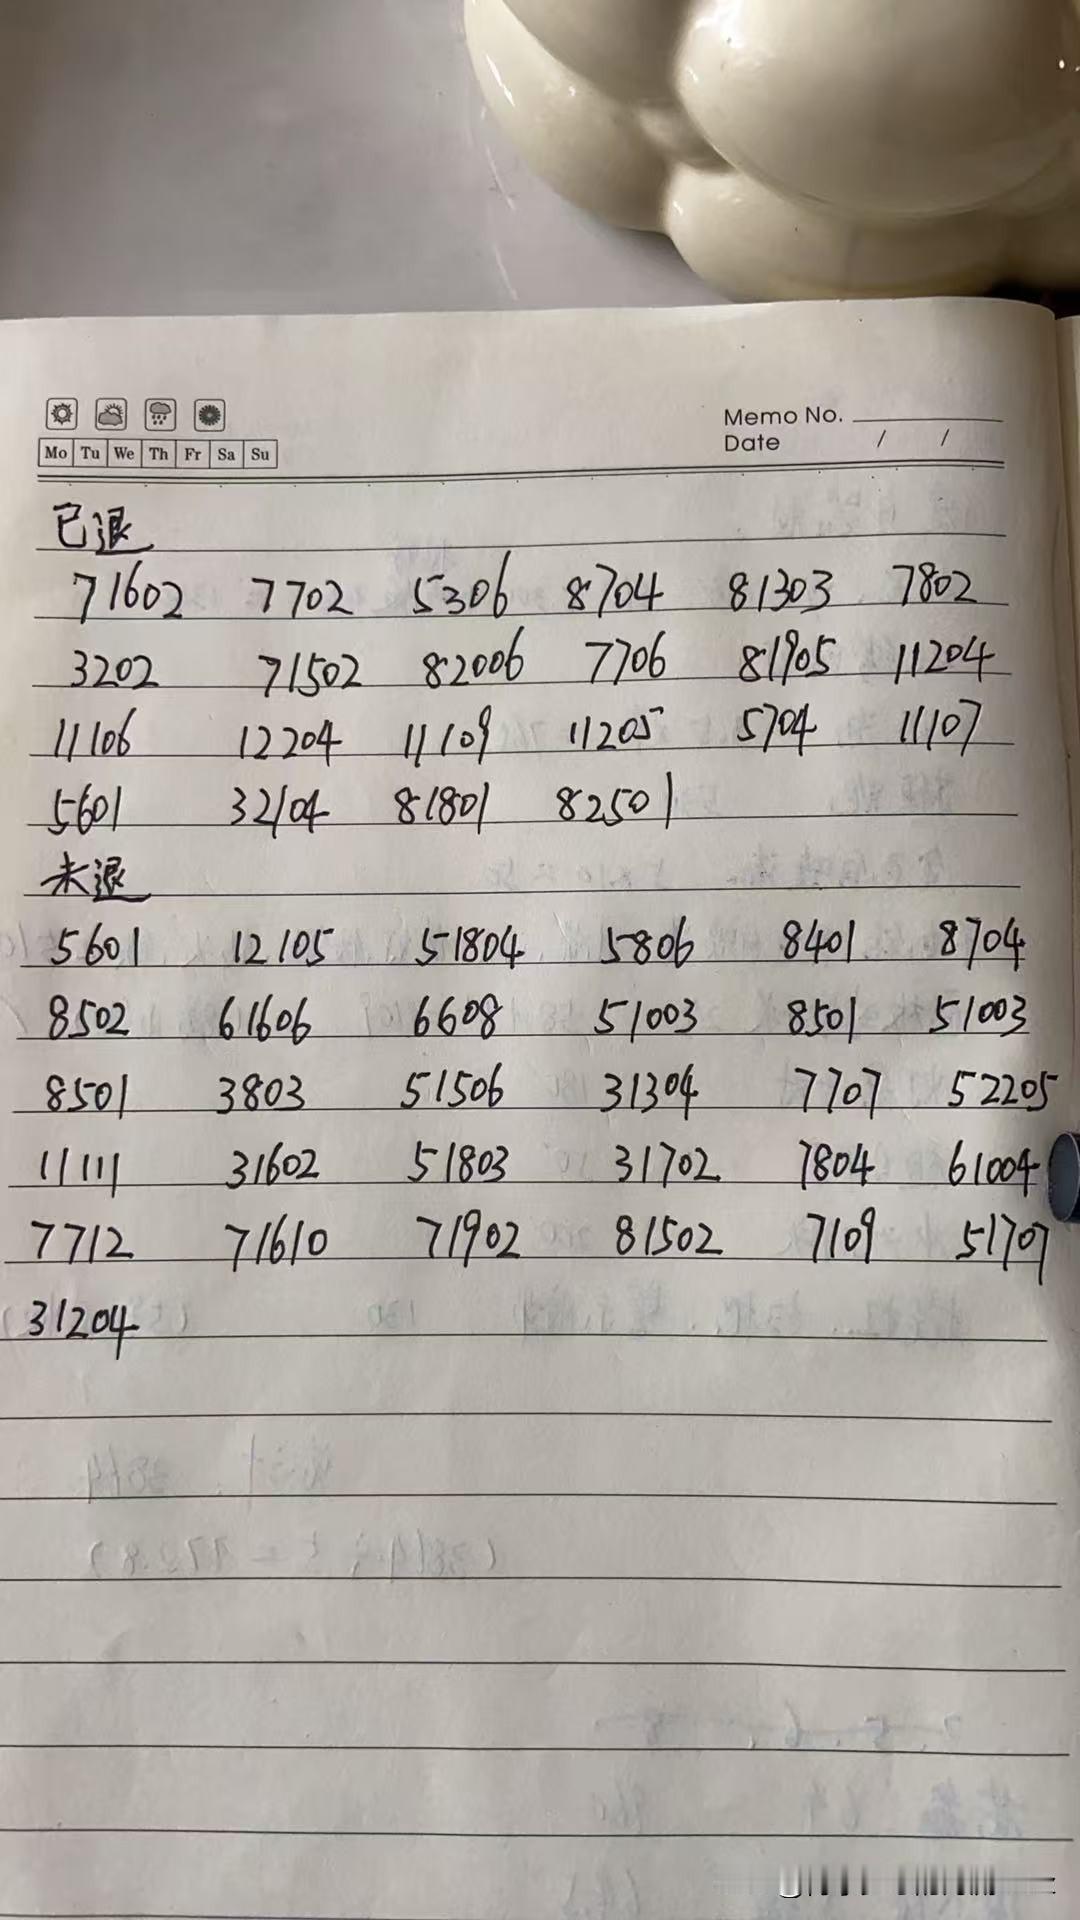 Memo No.
Date / /
Mo Tu We Th Fr Sa Su
已退
71602 7702 5306 8704 81303 7802
3202 71502 82006 7706 81905 11204
11106 12204 11109 11205 5704 11107
5601 32104 81801 82501
未退
5601 12105 51804 5806 8401 8704
8502 61606 6608 51003 8501 51003
8501 3803 51506 31304 7707 52205
11111 31602 51803 31702 7804 61004
7712 71610 71902 81502 7109 51707
31204